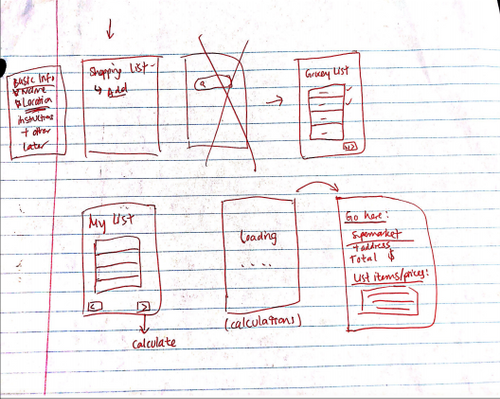 Basic Info
Name
Location
instructions
+ other
Later
Shopping List
↳ Add
Grocery List
My List
< >
calculate
Loading
....
(calculations)
Go here:
Supermarket
+ address
Total $
List items/prices: